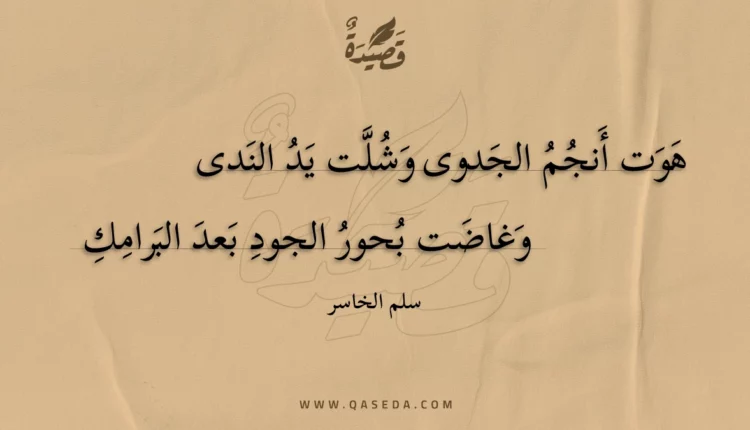 قَصِيدَةٌ
هَوَت أَنجُمُ الجَدوى وَشُلَّت يَدُ النَدى
وَغاضَت بُحورُ الجودِ بَعدَ البَرامِكِ
سلم الخاسر
WWW.QASEDA.COM